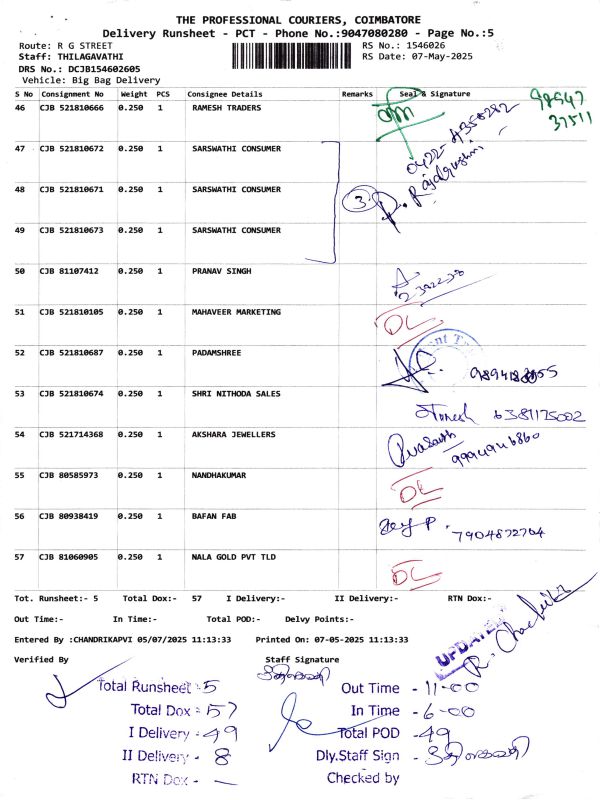 THE PROFESSIONAL COURIERS, COIMBATORE
Delivery Runsheet - PCT - Phone No.:9047080280 - Page No.:5
Route: R G STREET
RS No.: 1546026
Staff: THILAGAVATHI
RS Date: 07-May-2025
DRS No.: DCJB154602605
Vehicle: Big Bag Delivery
S No Consignment No Weight PCS Consignee Details Remarks Seal & Signature
46 CJB 521810666 0.250 1 RAMESH TRADERS
98947
37511
47 CJB 521810672 0.250 1 SARSWATHI CONSUMER
0422-4358292
48 CJB 521810671 0.250 1 SARSWATHI CONSUMER 3
49 CJB 521810673 0.250 1 SARSWATHI CONSUMER
50 CJB 81107412 0.250 1 PRANAV SINGH
2392238
51 CJB 521810105 0.250 1 MAHAVEER MARKETING DL
52 CJB 521810687 0.250 1 PADAMSHREE
53 CJB 521810674 0.250 1 SHRI NITHODA SALES
6381175002
54 CJB 521714368 0.250 1 AKSHARA JEWELLERS Prasanth
9994946860
55 CJB 80585973 0.250 1 NANDHAKUMAR DL
56 CJB 80938419 0.250 1 BAFAN FAB 7904872764
57 CJB 81060905 0.250 1 NALA GOLD PVT TLD DL
Tot. Runsheet:- 5 Total Dox:- 57 I Delivery:- II Delivery:- RTN Dox:-
Out Time:- In Time:- Total POD:- Delvy Points:-
Entered By :CHANDRIKAPVI 05/07/2025 11:13:33 Printed On: 07-05-2025 11:13:33
UPDATED
R. Chandrika
Verified By Staff Signature
Total Runsheet : 5 Out Time - 11-00
Total Dox : 57 In Time - 6-00
I Delivery : 49 Total POD - 49
II Delivery - 8 Dly.Staff Sign -
RTN Dox - — Checked by